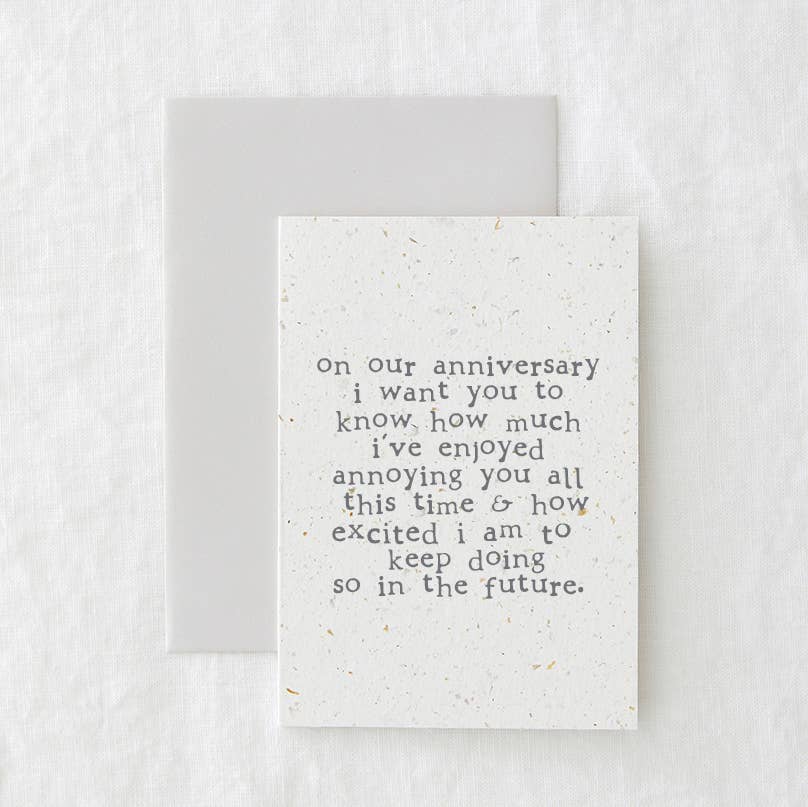 on our anniversary
i want you to
know how much
i've enjoyed
annoying you all
this time & how
excited i am to
keep doing
so in the future.